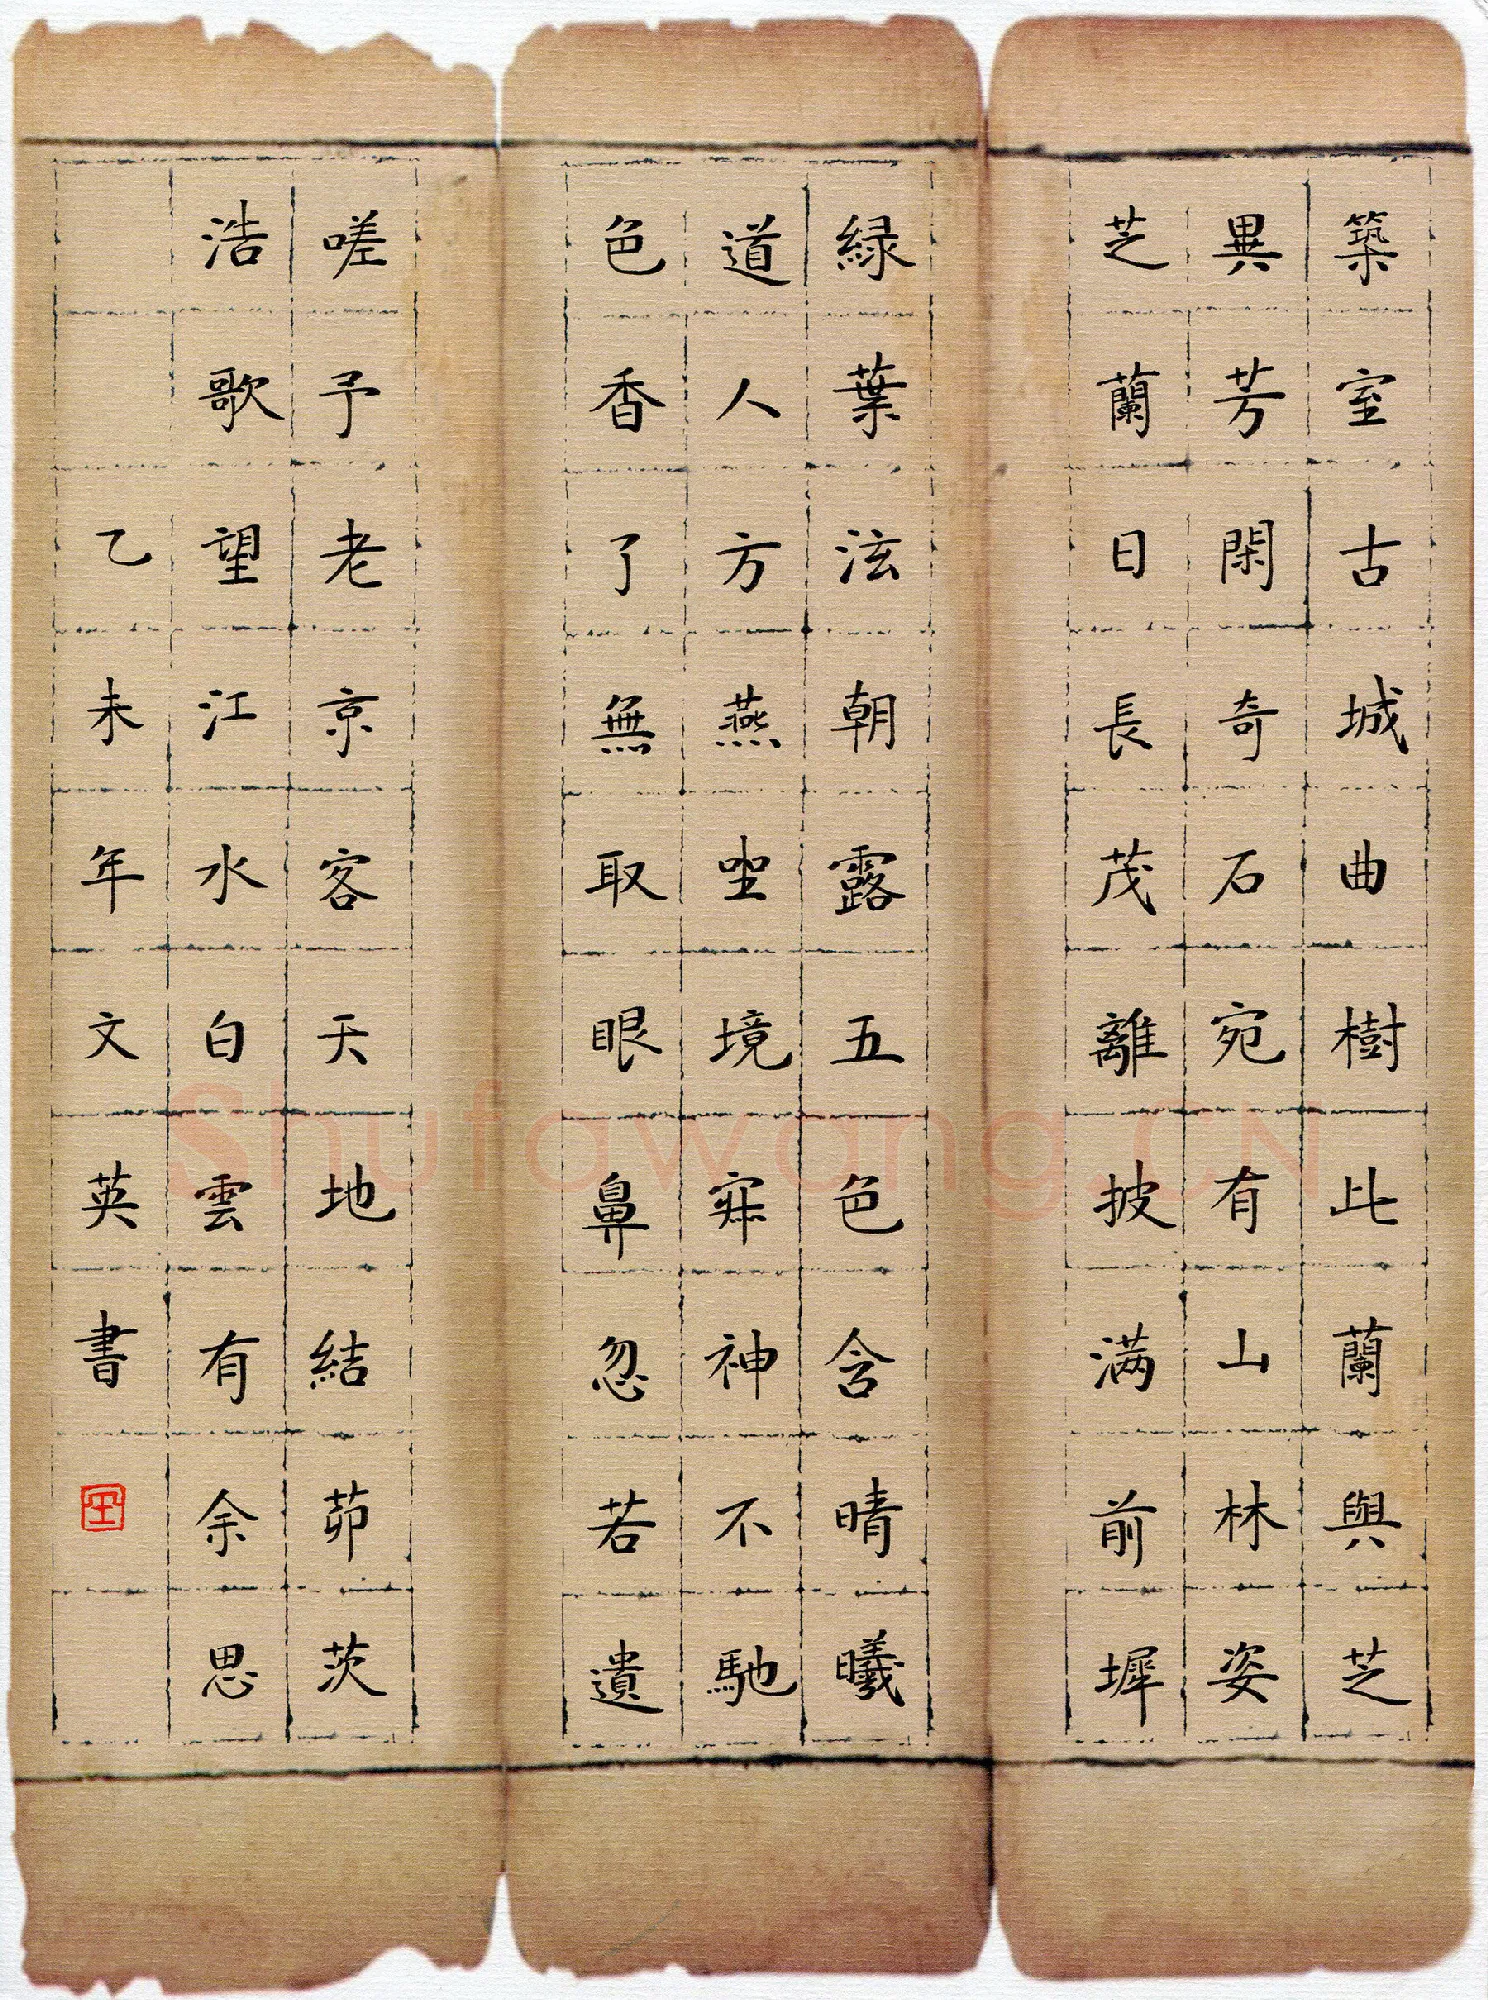 築室古城曲樹此蘭與芝
異芳閑奇石宛有山林姿
芝蘭日長茂離披满前墀
緑葉泫朝露五色含晴曦
道人方燕坐境寂神不馳
色香了無取眼鼻忽若遺
嗟予老京客天地結茆茨
浩歌望江水白雲有余思
乙未年文英書
Shufawang.CN